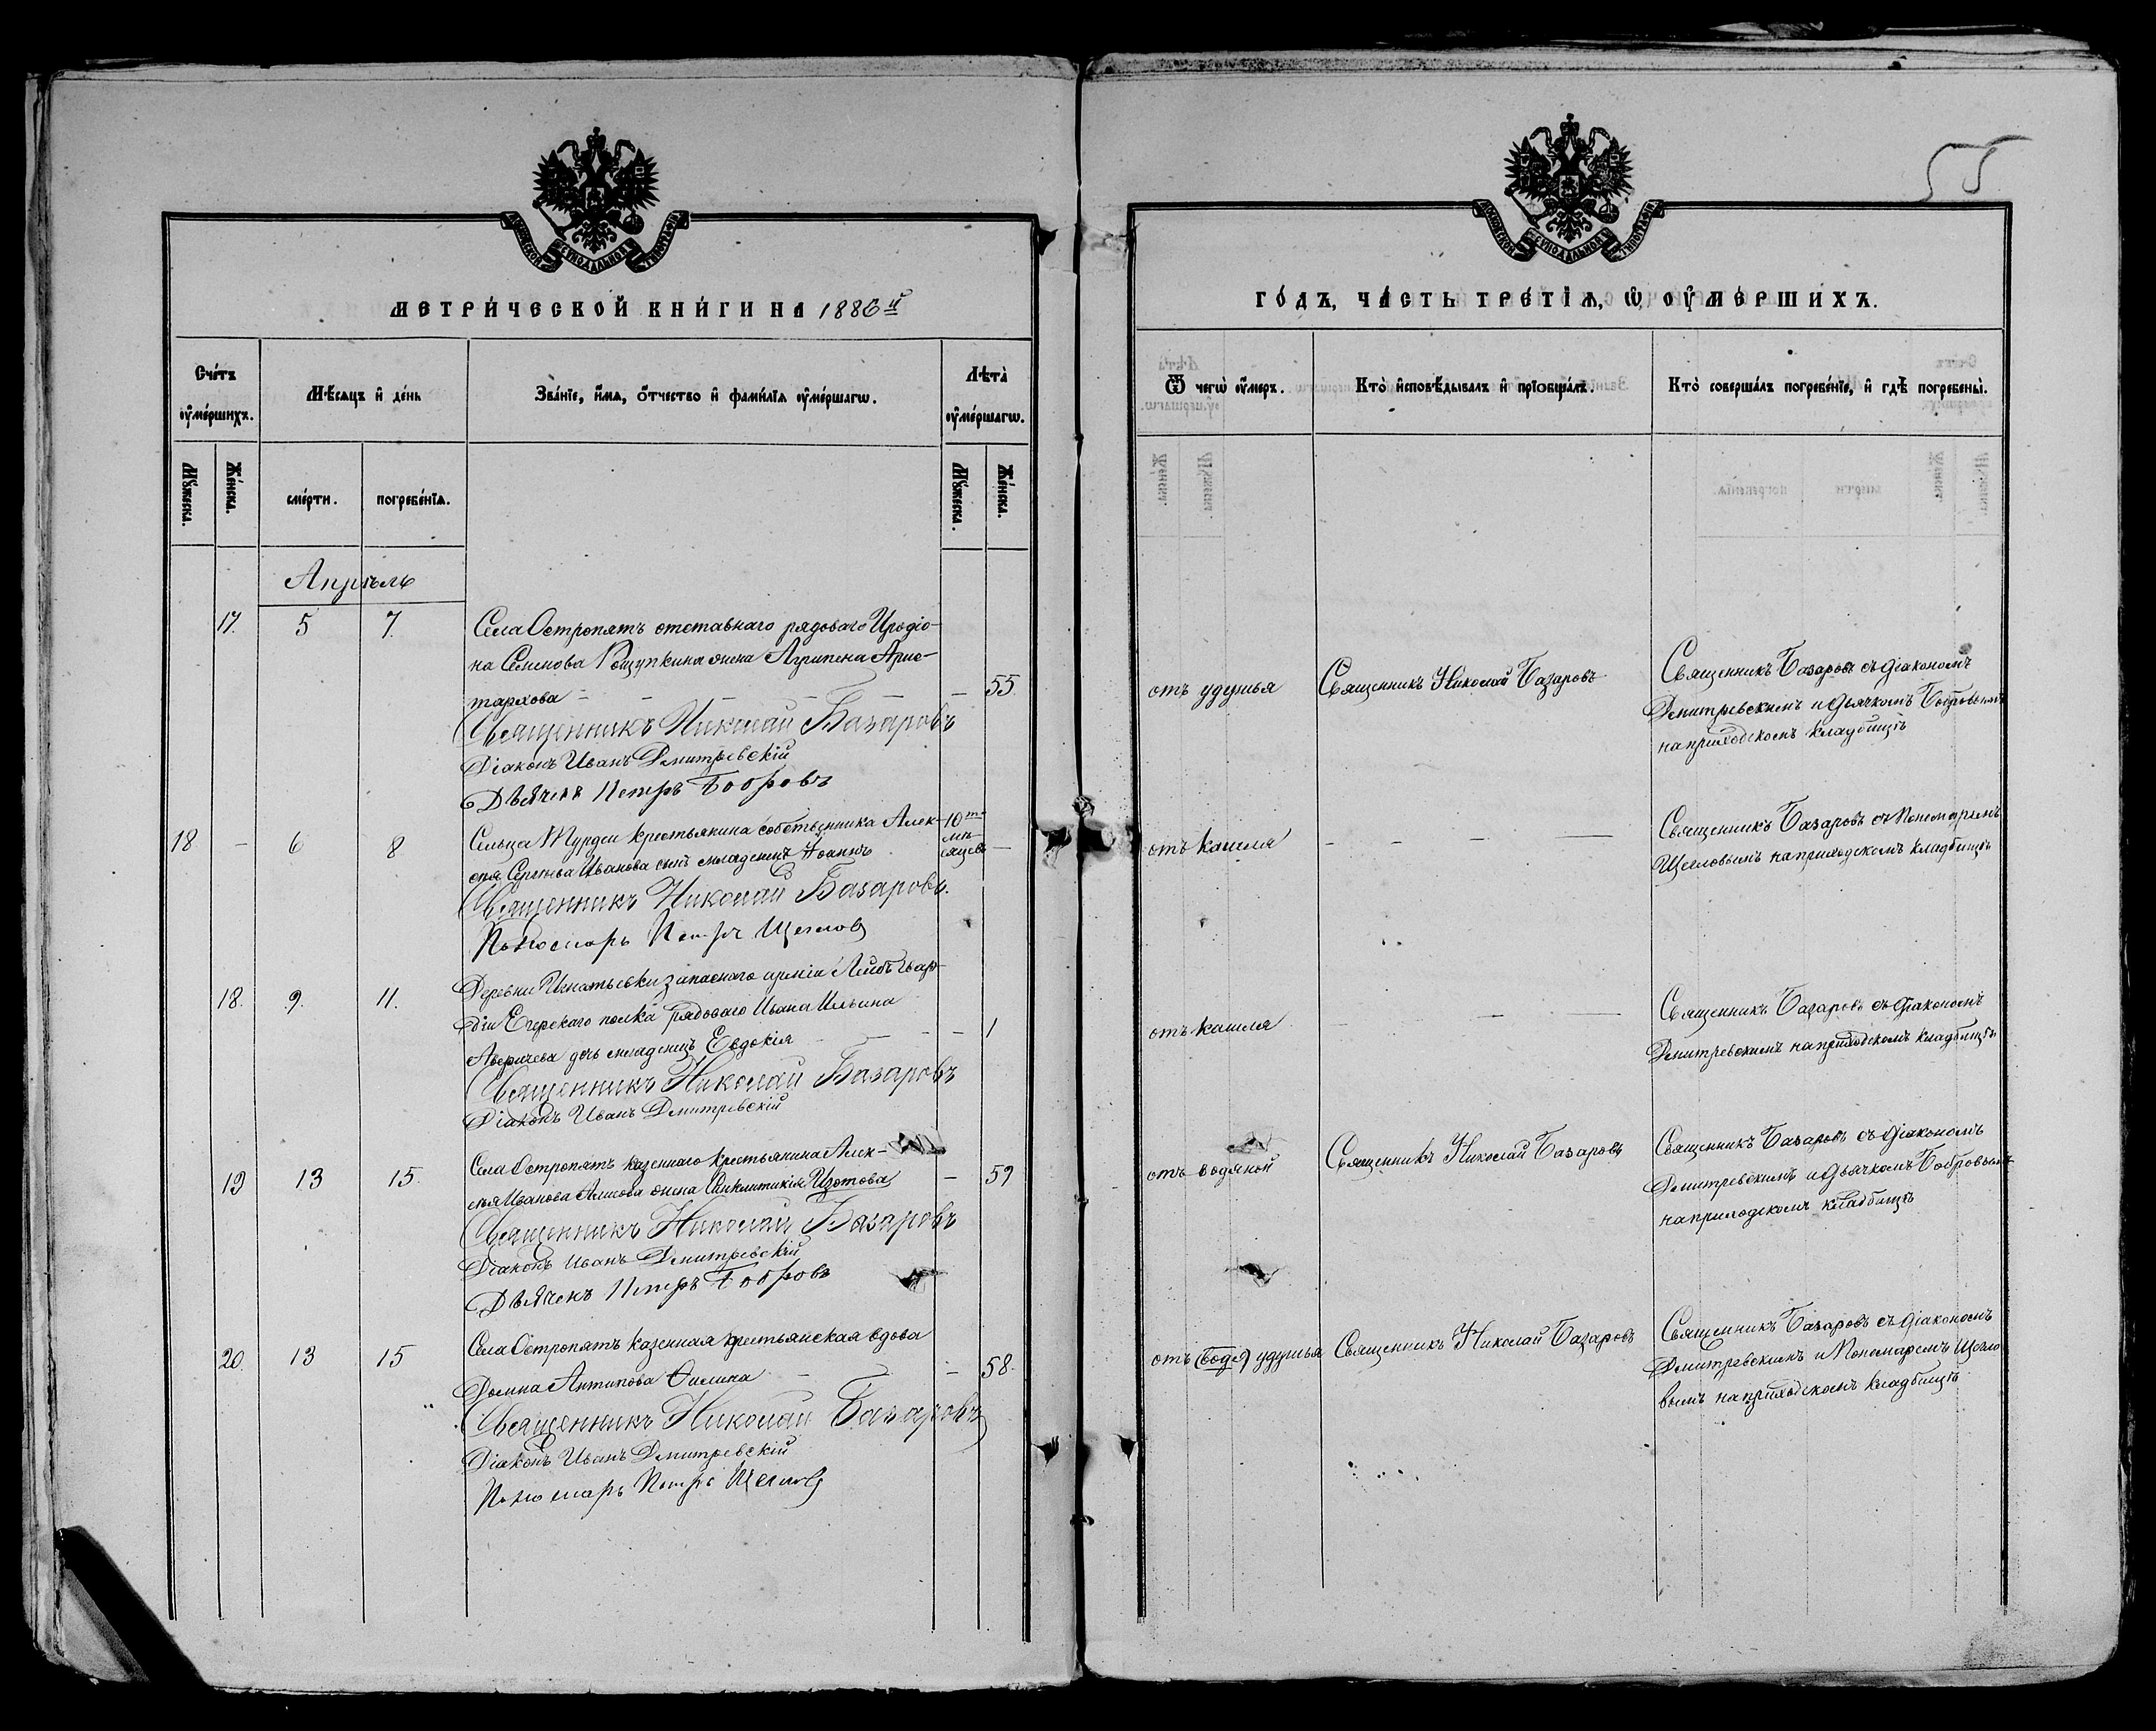 55
МОСКОВСКОЙ СѴНОДАЛЬНОЙ ТИПОГРАФІИ
МОСКОВСКОЙ СѴНОДАЛЬНОЙ ТИПОГРАФІИ
МЕТРИ́ЧЕСКОЙ КНИ́ГИ НА 1886й
ГО́ДЪ, ЧА́СТЬ ТРЕ́ТІѦ, Ѡ҆ ОУ҆МЕ́РШИХЪ.
Сче́тъ оу҆ме́ршихъ.
Мѣ́сѧцъ и҆ де́нь
Зва́нїе, и҆́мѧ, ѻ҆́тчество и҆ фамі́лїѧ оу҆ме́ршагѡ.
Лѣ́та оу҆ме́ршагѡ.
Мꙋ́жеска.
Же́нска.
сме́рти.
погребе́нїѧ.
Мꙋ́жеска.
Же́нска.
Ѿ чегѡ̀ оу҆́меръ.
Кто̀ и҆сповѣ́дывалъ и҆ прїѡбща́лъ.
Кто̀ соверша́лъ погребе́нїе, и҆ гдѣ̀ погребены̀.
Апрѣль
17. 5 7. Села Остропятъ отставнаго рядоваго Иродіо-
на Семенова Рощупкина жена Агрипена Арис-
тархова — 55
Священникъ Николай Базаровъ
Діаконъ Иванъ Дмитревскій
Дьячекъ Петръ Бобровъ
отъ удушья
Священникъ Николай Базаровъ
Священникъ Базаровъ съ діакономъ
Дмитревскимъ и дьячкомъ Бобровымъ
на приходскомъ кладбищѣ
18 — 6 8 Сельца Турдеи крестьянина собственника Алек-
сѣя Сергѣева Иванова сынъ младенецъ Іоаннъ
10ти мѣсяцевъ —
Священникъ Николай Базаровъ.
Пономарь Петръ Щегловъ
отъ кашля — — — —
Священникъ Базаровъ съ Пономаремъ
Щегловымъ на приходскомъ кладбищѣ
18. 9. 11. Деревни Игнатьевки запаснаго арміи Лейбъ Гвар-
діи Егерскаго полка рядоваго Ивана Ильина
дочь младенецъ Евдокія — 1
Священникъ Николай Базаровъ
Діаконъ Иванъ Дмитревскій
отъ кашля — — —
Священникъ Базаровъ съ діакономъ
Дмитревскимъ на приходскомъ кладбищѣ
19 13 15. Села Остропятъ казеннаго крестьянина Алек-
сѣя Иванова жена Синклитикія Изотова — 59
Священникъ Николай Базаровъ
Діаконъ Иванъ Дмитревскій
Дьячекъ Петръ Бобровъ
отъ водяной
Священникъ Николай Базаровъ
Священникъ Базаровъ съ діакономъ
Дмитревскимъ и дьячкомъ Бобровымъ
на приходскомъ кладбищѣ
20. 13 15 Села Остропятъ казенная крестьянская вдова
Домна Антипова — 58.
Священникъ Николай Базаровъ
Діаконъ Иванъ Дмитревскій
Пономарь Петръ Щегловъ
отъ (водя) удушья
Священникъ Николай Базаровъ
Священникъ Базаровъ съ діакономъ
Дмитревскимъ и Пономаремъ Щегло
вымъ на приходскомъ кладбищѣ